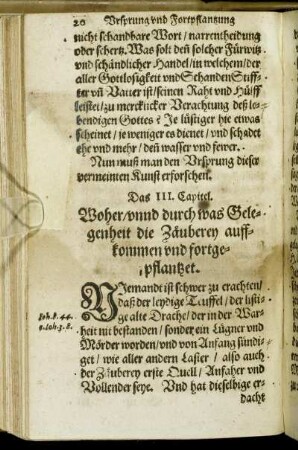 20 Vrsprung vnd Fortpflantzung
nicht schandbare Wort / narrentheidung
oder schertz. Was solt deñ solcher Fürwitz
vnd schändlicher Handel / in welchem / der
aller Gottlosigkeit vnd Schanden Stiff-
ter vñ Vatter ist / seinen Raht vnd Hülff
leistet / zu mercklicher Verachtung deß le-
bendigen Gottes? Je lüstiger hie etwas
scheinet / je weniger es dienet / vnd schadet
ehe vnd mehr / deñ wasser vnd fewer.
Nun muß man den Vrsprung dieser
vermeinten Kunst erforschen.
Das III. Capitel.
Woher / vnnd durch was Gele-
genheit die Zäuberey auff-
kommen vnd fortge-
pflantzet.
Niemandt ist schwer zu erachten /
daß der leydige Teuffel / der listi-
Joh. 8. 44.
ge alte Drache / der in der War-
1. Joh. 3. 8.
heit nit bestanden / sonder ein Lügner vnd
Mörder worden / vnd von Anfang sündi-
get / wie aller andern Laster / also auch
der Zäuberey erste Quell / Anfaher vnd
Vollender seye. Vnd hat dieselbige er-
dacht